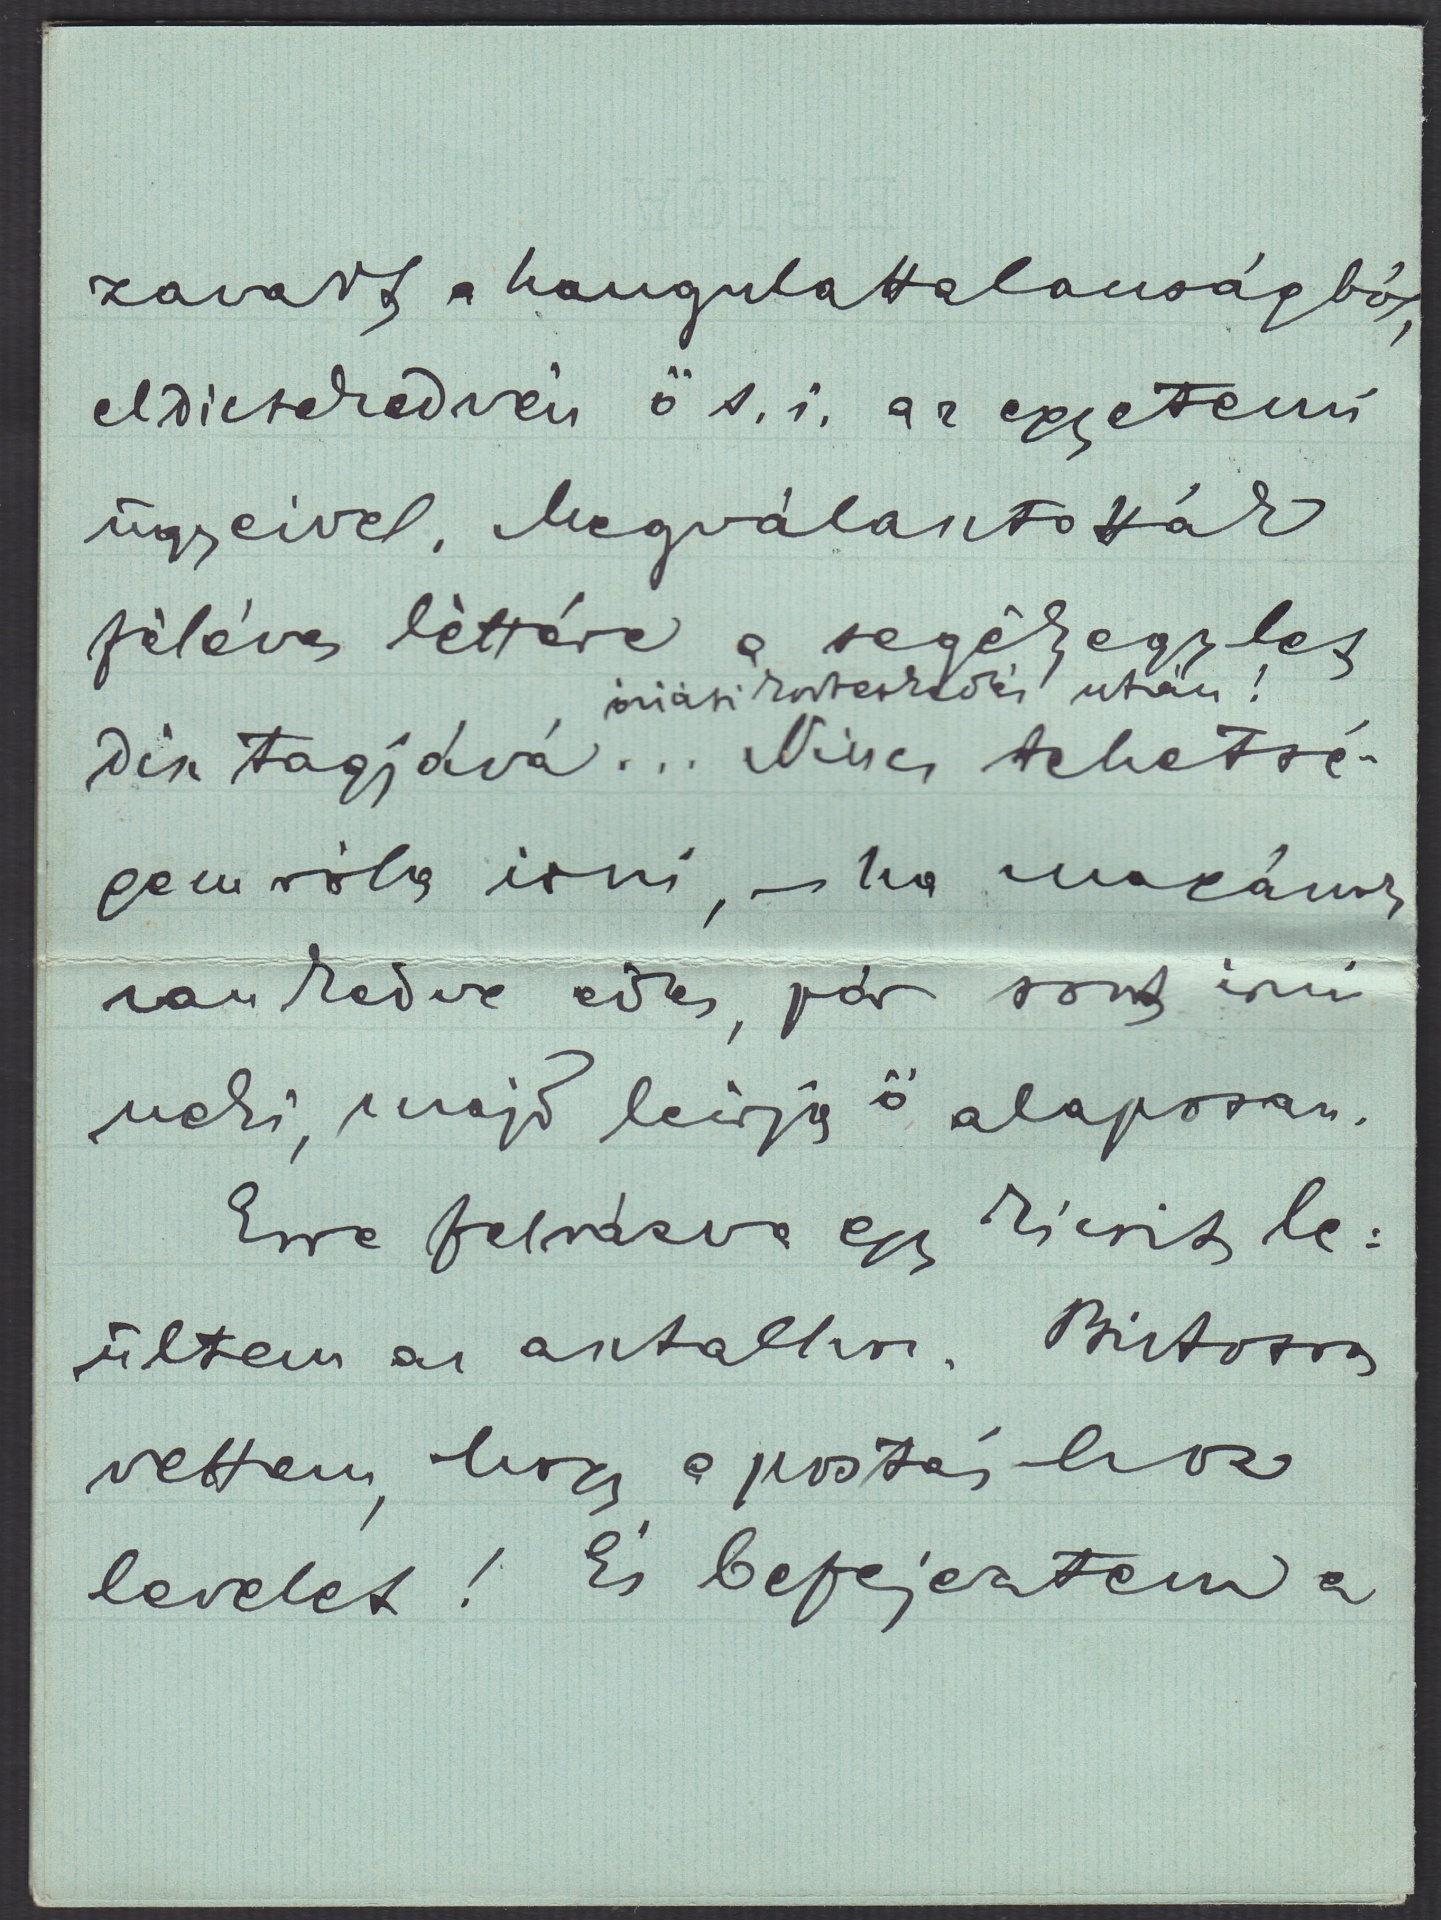 zavart a hangulattalanságból,
eldicsekedvén ő t. i. az egyetemi
ügyeivel. Megválasztották
féléves létére a segélyegylet
óriási korteskedés után!
disz tagjává... Nincs tehetsé-
gem róla irni, – ha magának
van kedve édes, pár sort irni
neki, majd leirja ő alaposan.
Erre felrázva egy kicsit le:
ültem az asztalhoz. Biztosra
vettem, hogy a postás hoz
levelet! És befejeztem a